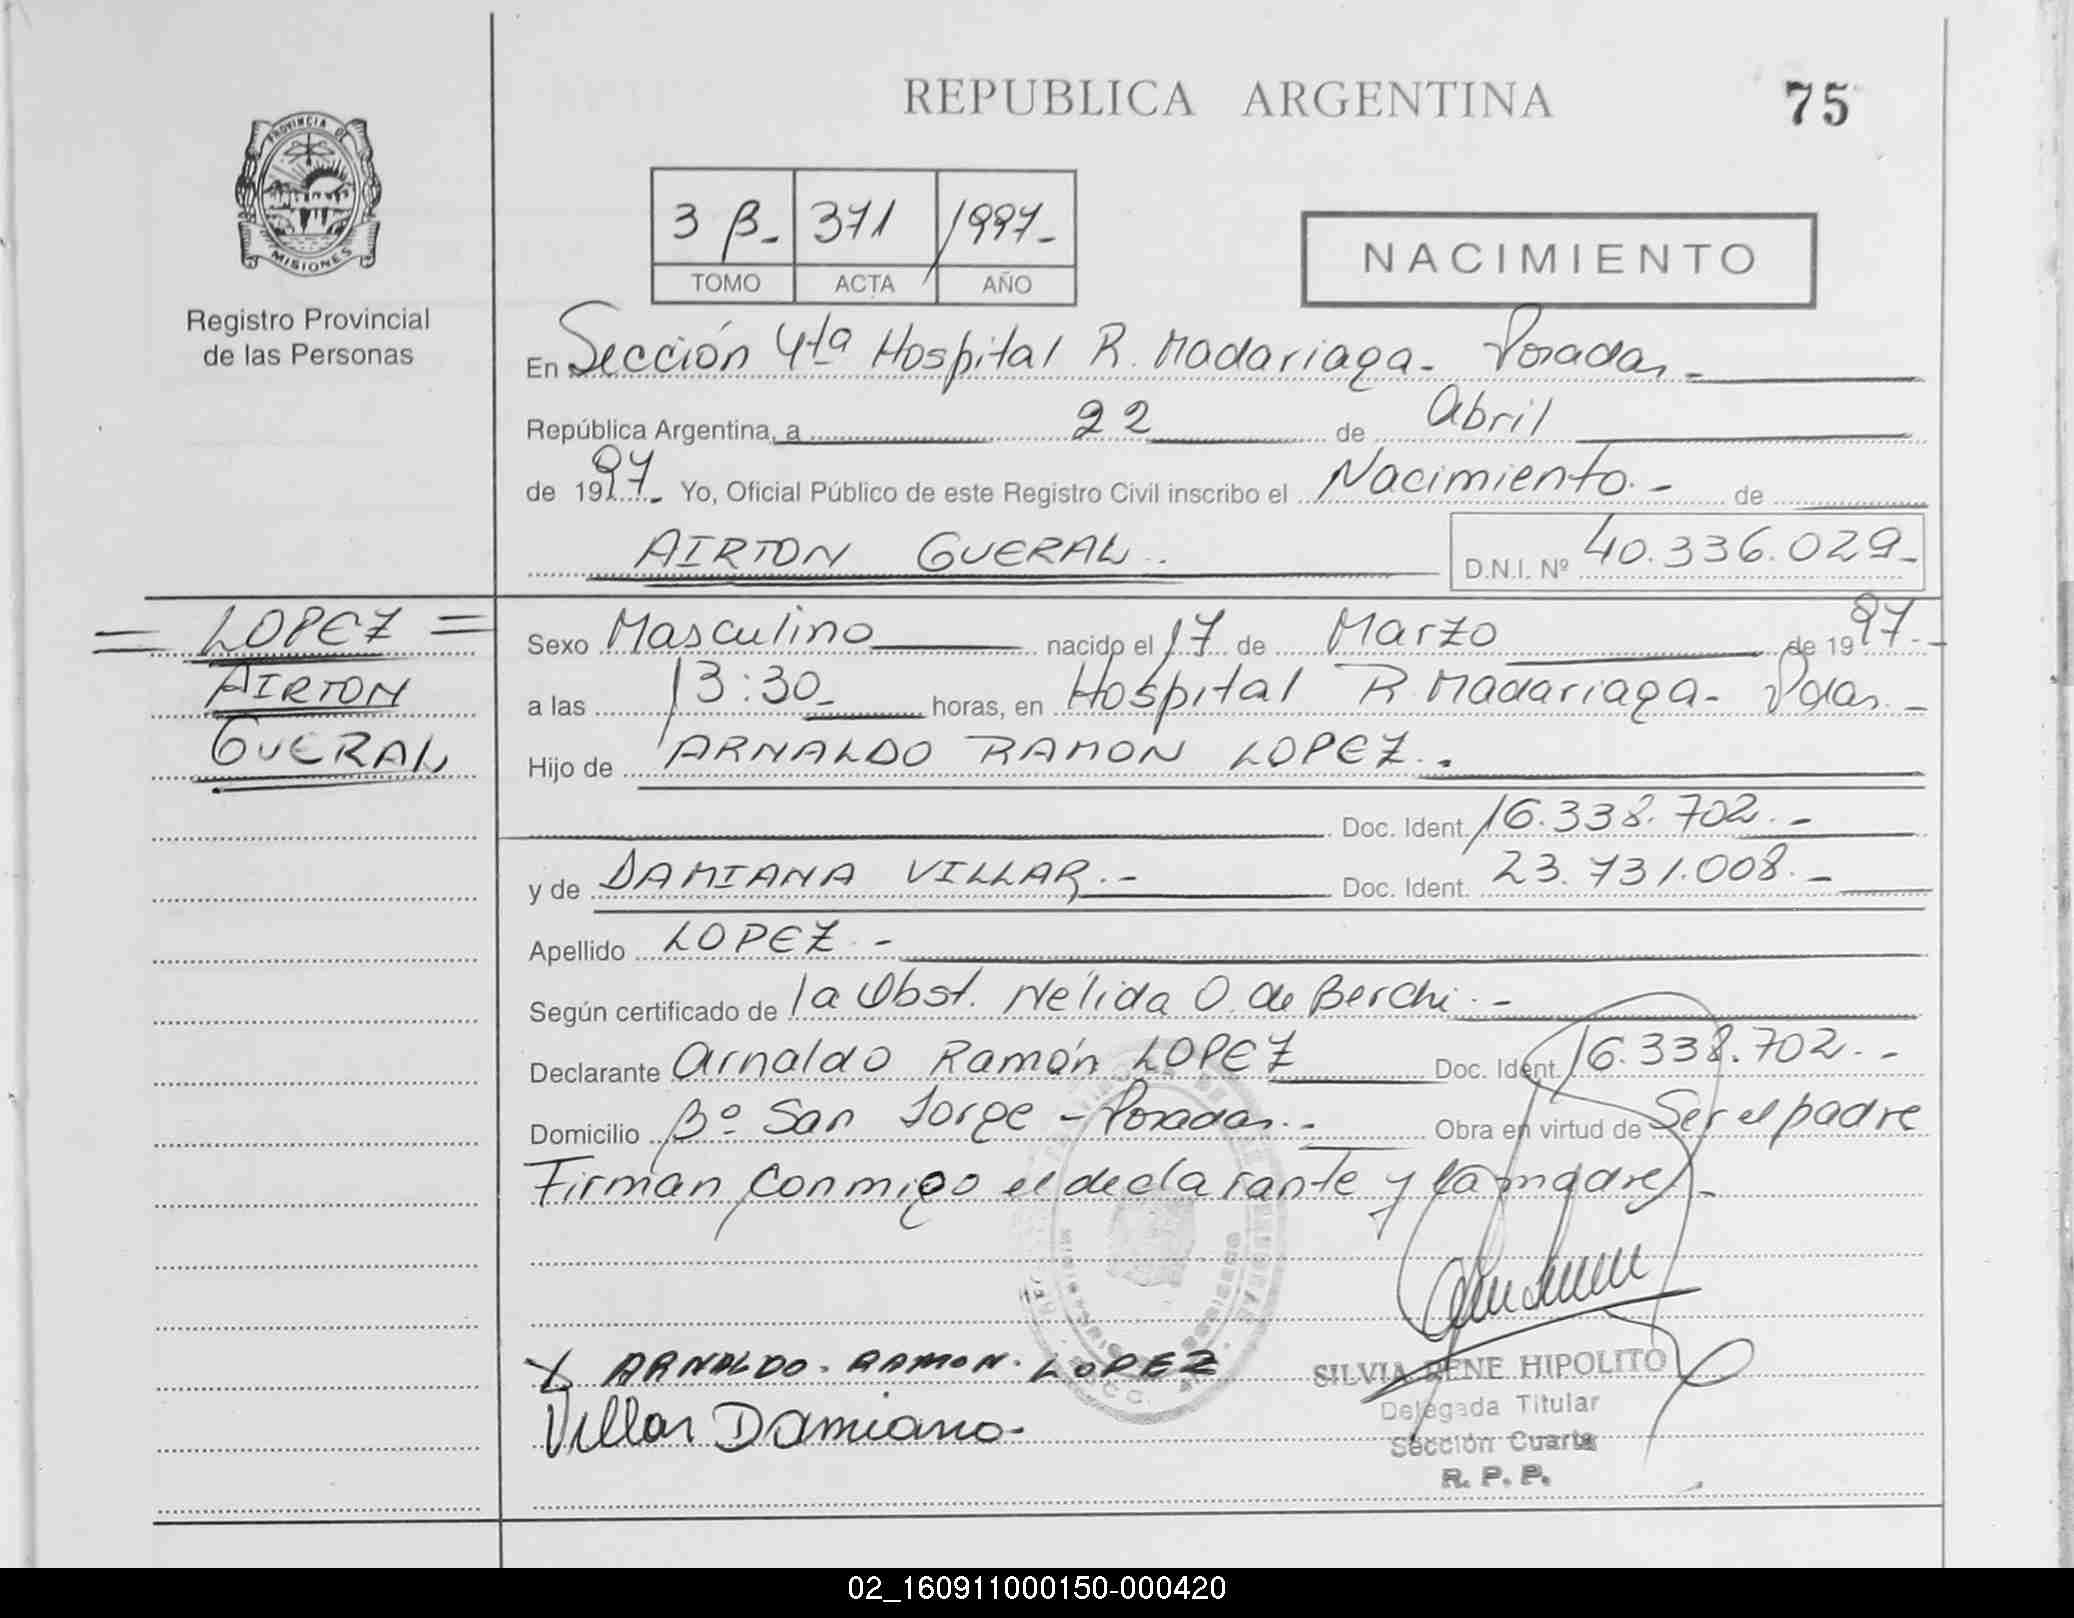 REPUBLICA ARGENTINA
75
PROVINCIA DE
MISIONES
Registro Provincial
de las Personas
3 B - 371 1997 -
TOMO ACTA AÑO
NACIMIENTO
En Sección 4ta Hospital R. Madariaga - Posadas -
República Argentina, a 22 de Abril
de 1997 - Yo, Oficial Público de este Registro Civil inscribo el Nacimiento. - de
AIRTON GUERAL. D.N.I. Nº 40.336.029 -
= LOPEZ =
AIRTON
GUERAL
Sexo Masculino nacido el 17 de Marzo de 1997. -
a las 13:30 - horas, en Hospital R. Madariaga - Pdas. -
Hijo de ARNALDO RAMON LOPEZ. -
Doc. Ident. 16.338.702. -
y de DAMIANA VILLAR. - Doc. Ident. 23.731.008. -
Apellido LOPEZ. -
Según certificado de la Obst. Nélida O. de Berchi. -
Declarante Arnaldo Ramón LOPEZ Doc. Ident. 16.338.702. -
Domicilio Bº San Jorge - Posadas. - Obra en virtud de Ser el padre
Firman conmigo el declarante y la madre -
X ARNALDO. RAMON. LOPEZ
Villar Damiana -
SILVIA RENE HIPOLITO
Delegada Titular
Sección Cuarta
R. P. P.
02_160911000150-000420